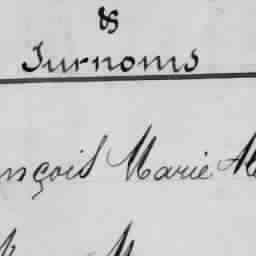 &
Surnoms
nçois Marie Al
M